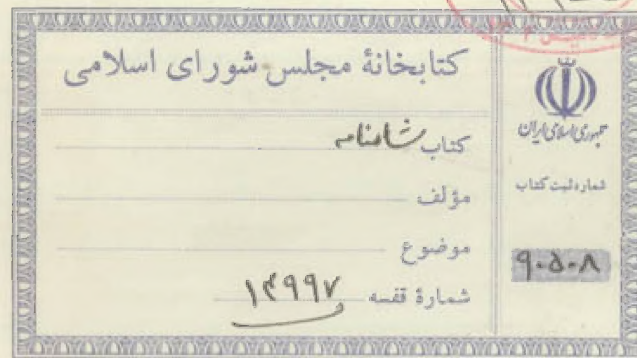 کتابخانهٔ مجلس شورای اسلامی
کتاب شاهنامه
مؤلف
موضوع
شمارهٔ قفسه ۱۴۹۹۷
جمهوری اسلامی ایران
شماره ثبت کتاب
۹۰۵۰۸